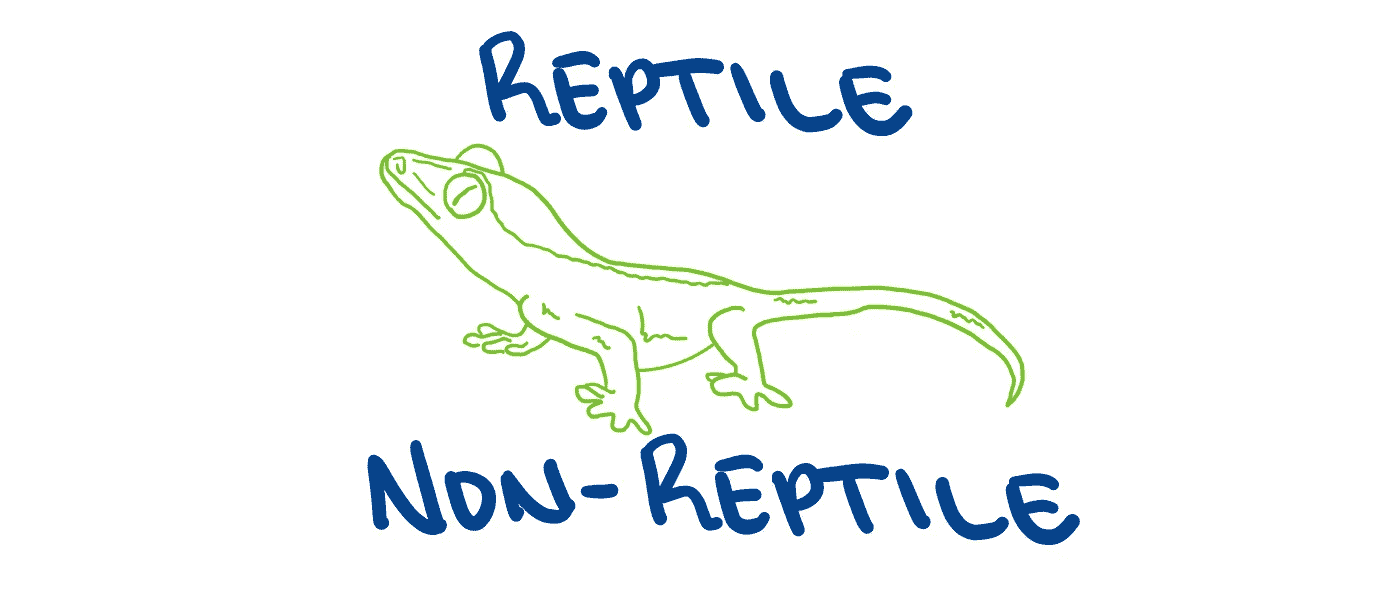 REPTILE
NON-REPTILE